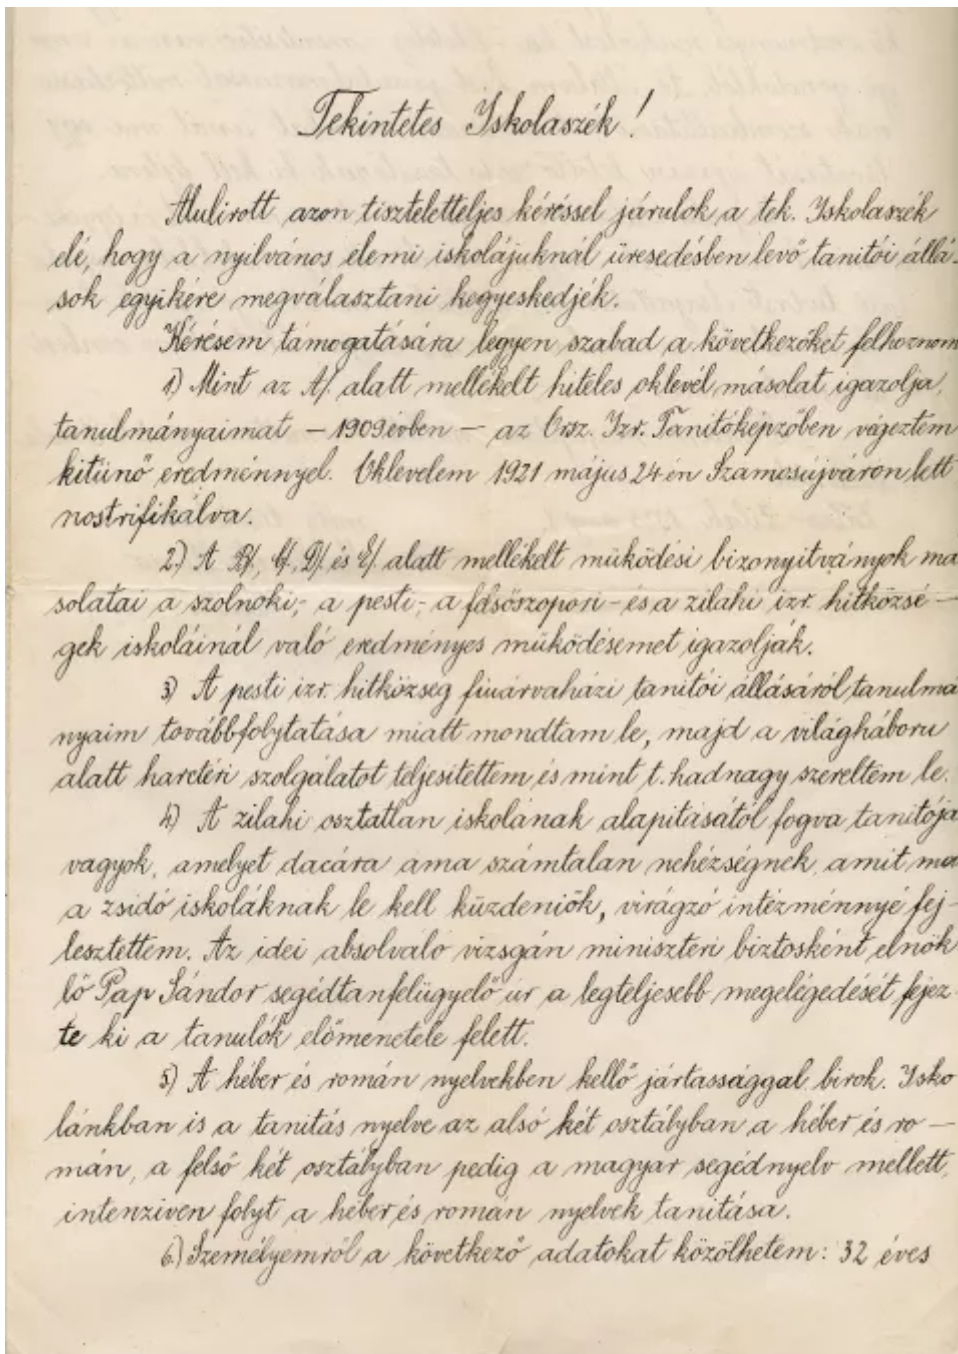 Tekintetes Iskolaszék!
Alulirott azon tiszteletteljes kéréssel járulok a tek. Iskolaszék
elé, hogy a nyilvános elemi iskolájuknál üresedésben levő tanitói állá-
sok egyikére megválasztani kegyeskedjék.
Kérésem támogatására legyen szabad a következőket felhoznom
1) Mint az A/. alatt mellékelt hiteles oklevél másolat igazolja,
tanulmányaimat – 1909 évben – az Orsz. Izr. Tanitóképzőben végeztem
kitünő eredménnyel. Oklevelem 1921 május 24-én Szamosújváron lett
nostrifikálva.
2.) A B/., C/., D/. és E/. alatt mellékelt müködési bizonyitványok má
solatai a szolnoki,- a pesti,- a felsőszopori - és a zilahi izr. hitközsé –
gek iskoláinál való eredményes müködésemet igazolják.
3) A pesti izr. hitközség fiuárvaházi tanitói állásáról tanulmá
nyaim továbbfolytatása miatt mondtam le, majd a világháboru
alatt harctéri szolgálatot teljesitettem és mint t. hadnagy szereltem le.
4) A zilahi osztatlan iskolának alapitásától fogva tanitója
vagyok, amelyet dacára ama számtalan nehézségnek, amit ma
a zsidó iskoláknak le kell küzdeniök, virágzó intézménnyé fej-
lesztettem. Az idei absolváló vizsgán miniszteri biztosként elnök
lő Pap Sándor segédtanfelügyelő úr a legteljesebb megelégedését fejez-
te ki a tanulók előmenetele felett.
5) A héber és román nyelvekben kellő jártassággal birok. Isko
lánkban is a tanitás nyelve az alsó két osztályban a héber és ro –
mán, a felső két osztályban pedig a magyar segédnyelv mellett,
intenziven folyt a héber és román nyelvek tanitása.
6.) Személyemről a következő adatokat közölhetem: 32 éves